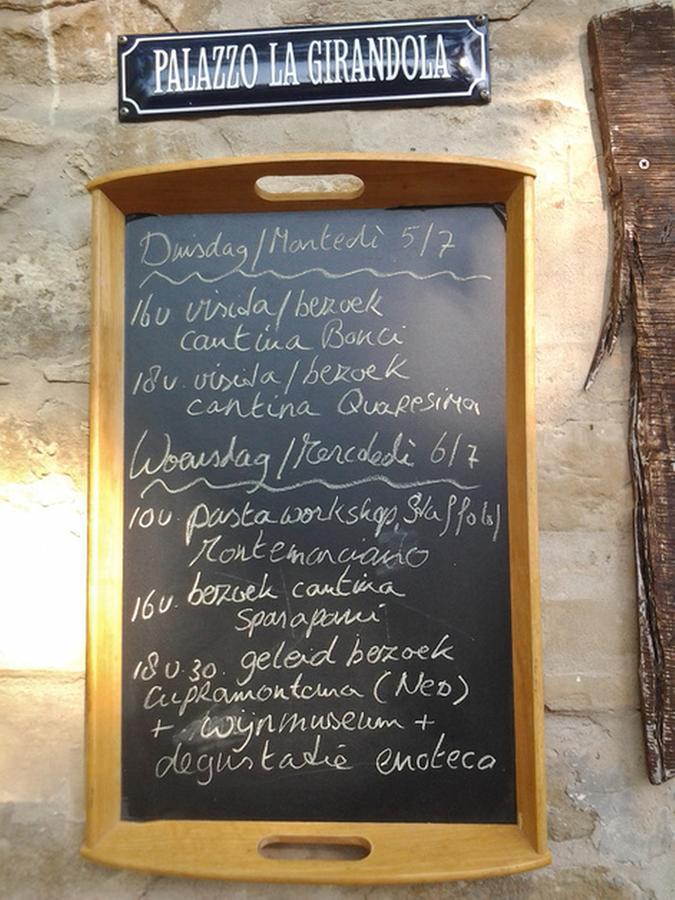 PALAZZO LA GIRANDOLA
Dinsdag/Martedì 5/7
16u visita/bezoek
cantina Bonci
18u. visita/bezoek
cantina Quaresima
Woensdag/Mercoledì 6/7
10u. pastaworkshop, Staffolo)
Montemarciano
16u. bezoek cantina
Sparapani
18u.30. geleid bezoek
Cupramontana (Neo)
+ wijnmuseum +
degustatie enoteca